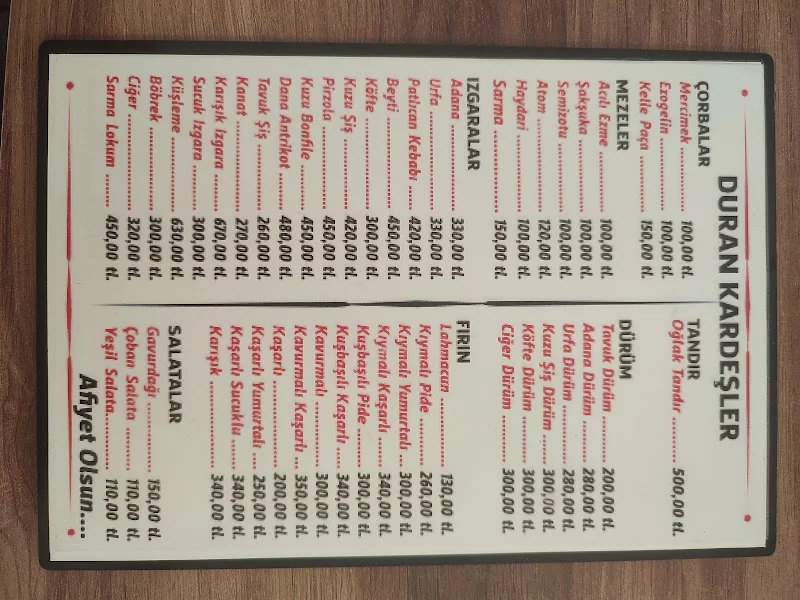 DURAN KARDEŞLER
ÇORBALAR
Mercimek .......... 100,00 tl.
Ezogelin .......... 100,00 tl.
Kelle Paça .......... 150,00 tl.
MEZELER
Acılı Ezme .......... 100,00 tl.
Şakşuka .......... 100,00 tl.
Semizotu .......... 100,00 tl.
Atom .......... 120,00 tl.
Haydari .......... 100,00 tl.
Sarma .......... 150,00 tl.
IZGARALAR
Adana .......... 330,00 tl.
Urfa .......... 330,00 tl.
Patlıcan Kebabı ..... 420,00 tl.
Beyti .......... 450,00 tl.
Köfte .......... 300,00 tl.
Kuzu Şiş .......... 420,00 tl.
Pirzola .......... 450,00 tl.
Kuzu Bonfile .......... 450,00 tl.
Dana Antrikot ....... 480,00 tl.
Tavuk Şiş .......... 260,00 tl.
Kanat .......... 270,00 tl.
Karışık Izgara ....... 670,00 tl.
Sucuk Izgara ........ 300,00 tl.
Küşleme .......... 630,00 tl.
Böbrek .......... 300,00 tl.
Ciğer .......... 320,00 tl.
Sarma Lokum ....... 450,00 tl.
TANDIR
Oğlak Tandır .......... 500,00 tl.
DÜRÜM
Tavuk Dürüm .......... 209,00 tl.
Adana Dürüm .......... 280,00 tl.
Urfa Dürüm .......... 280,00 tl.
Kuzu Şiş Dürüm ....... 300,00 tl.
Köfte Dürüm .......... 300,00 tl.
Ciğer Dürüm .......... 300,00 tl.
FIRIN
Lahmacun .......... 130,00 tl.
Kıymalı Pide .......... 260,00 tl.
Kıymalı Yumurtalı .... 300,00 tl.
Kıymalı Kaşarlı ....... 340,00 tl.
Kuşbaşılı Pide ......... 300,00 tl.
Kuşbaşılı Kaşarlı ..... 340,00 tl.
Kavurmalı .......... 300,00 tl.
Kavurmalı Kaşarlı .... 350,00 tl.
Kaşarlı .......... 200,00 tl.
Kaşarlı Yumurtalı .... 250,00 tl.
Kaşarlı Sucuklu ....... 340,00 tl.
Karışık .......... 340,00 tl.
SALATALAR
Gavurdağı .......... 150,00 tl.
Çoban Salata ....... 110,00 tl.
Yeşil Salata.......... 110,00 tl.
Afiyet Olsun....